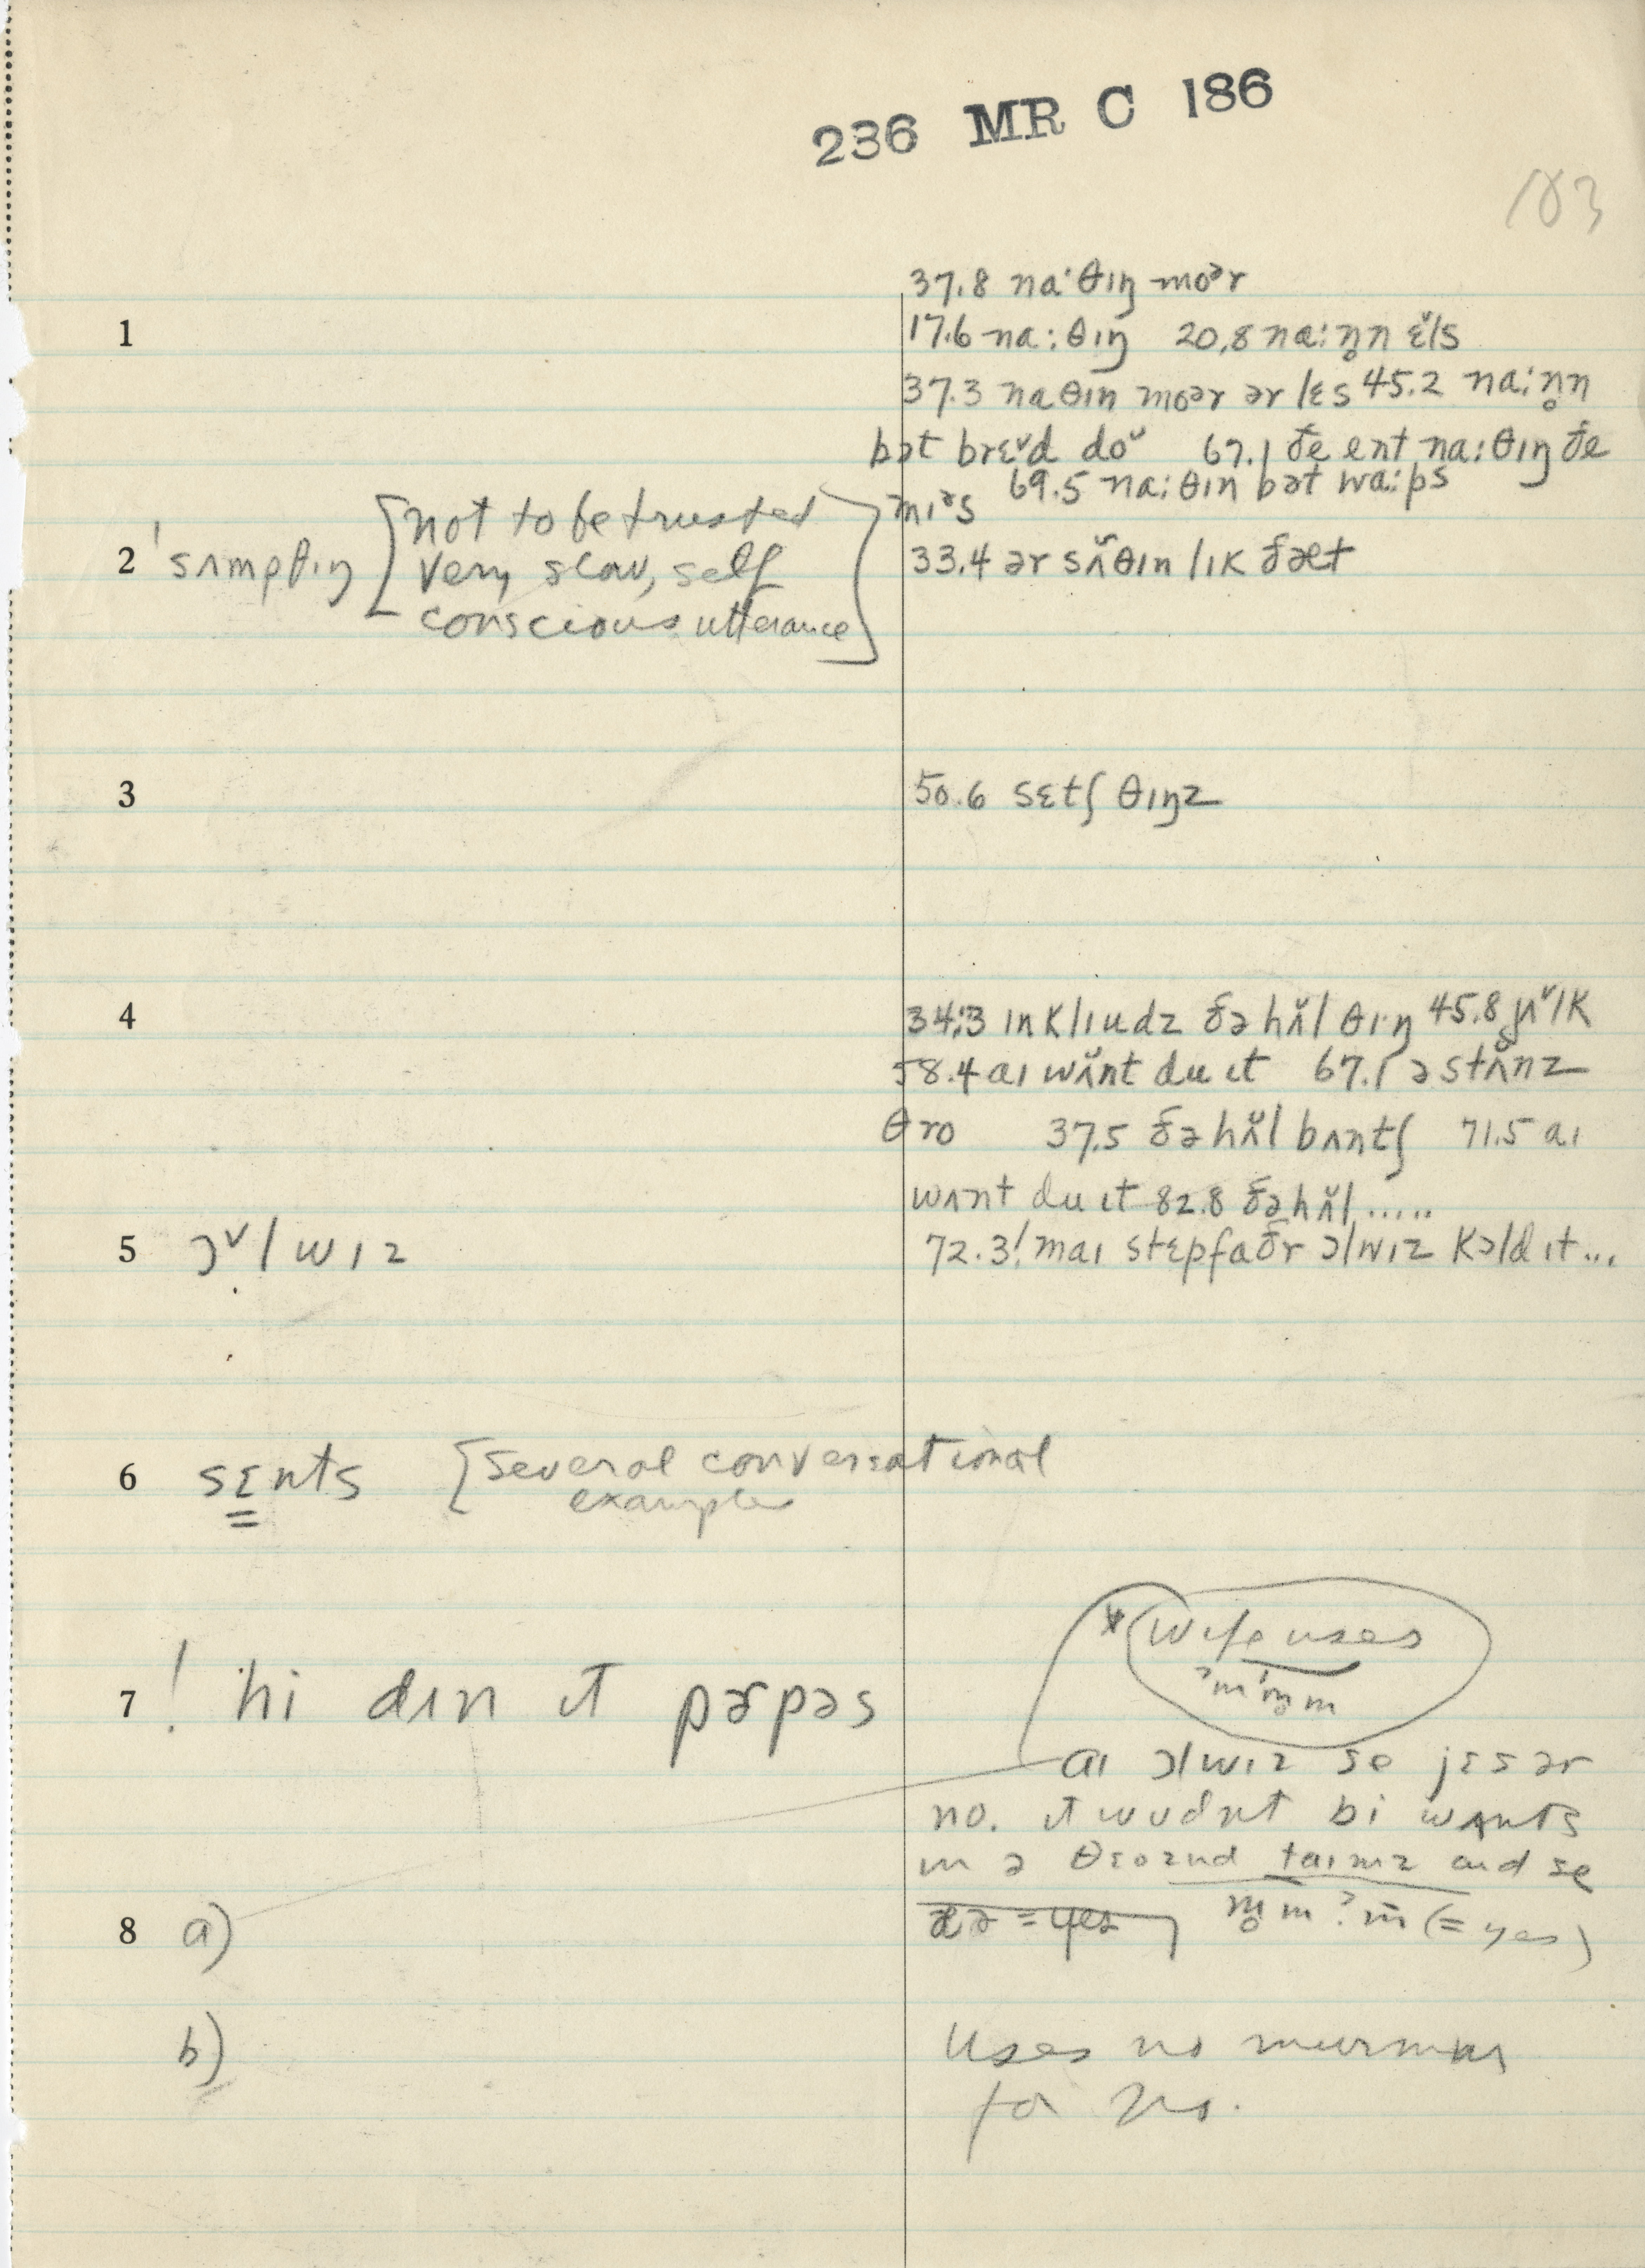 236 MR C 186
103
37.8 na·θɪŋ moᵊr
1 17.6 na:θɪŋ 20.8 na:n̥n ɛ̌ls
37.3 naθɪn moər ər lɛs 45.2 na:n̥n
bət brɛˇd doᵛ 67.1 ðe ent na:θɪŋ ðe
mɪᵊs 69.5 na:θɪn bət wa:ps
2 ˈsʌmpθɪŋ [not to be trusted
very slow, self
conscious utterance]
33.4 ər sʌ̌θɪn lɪk ðæt
3 50.6 sɛtʃ θɪŋz
4 34.3 ɪnklɪudz ðə hʌ̌l θɪ·ŋ 45.8 jʌˇlk
58.4 aɪ wʌ̌nt du ɪt 67.1 ə stʌ̌nz
θro 37.5 ðə hʌ̌l bʌntʃ 71.5 aɪ
wʌnt du ɪt 82.8 ðə hʌ̌l .....
5 ɔˇlwɪz 72.3! maɪ stɛpfaðr ɔlwɪz kɔld ɪt...
6 sɛnts [several conversational
examples
* wife uses
ˀmˈm̥m
7 ! hi dɪn ɪt pɚpəs
aɪ ɔlwɪz se jɛs ər
no. ɪt wudnt bi wʌnts
ɪn ə θɛoznd taɪmz aɪd se
8 a) æə = yes m̥m ˀm̄ (= yes)
b) Uses no murmur
for no.